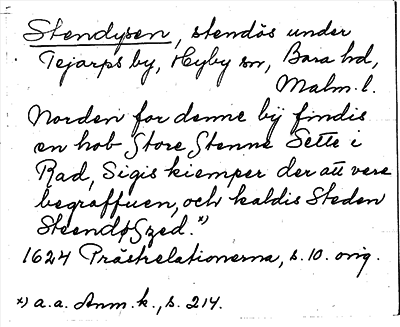 Stendysen, stendös under
Tejarps by, Hyby sn, Bara hd,
Malm. l.
Norden for denne bÿ findis
en hob Store Stenne Sette i
Rad, Sigis kiemper der att vere
begraffuen, och kaldis Steden
SteendøSzed.*)
1624 Prästrelationerna, s. 10. orig.
*) a.a. Anm. k., s. 214.